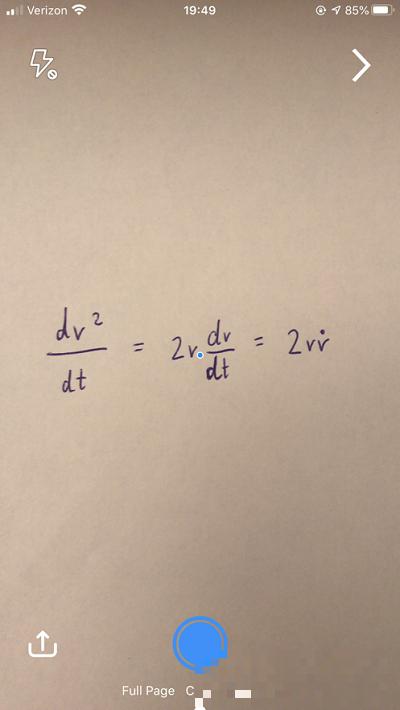 Verizon 19:49 85%
dv² / dt = 2v dv/dt = 2vv̇
Full Page C